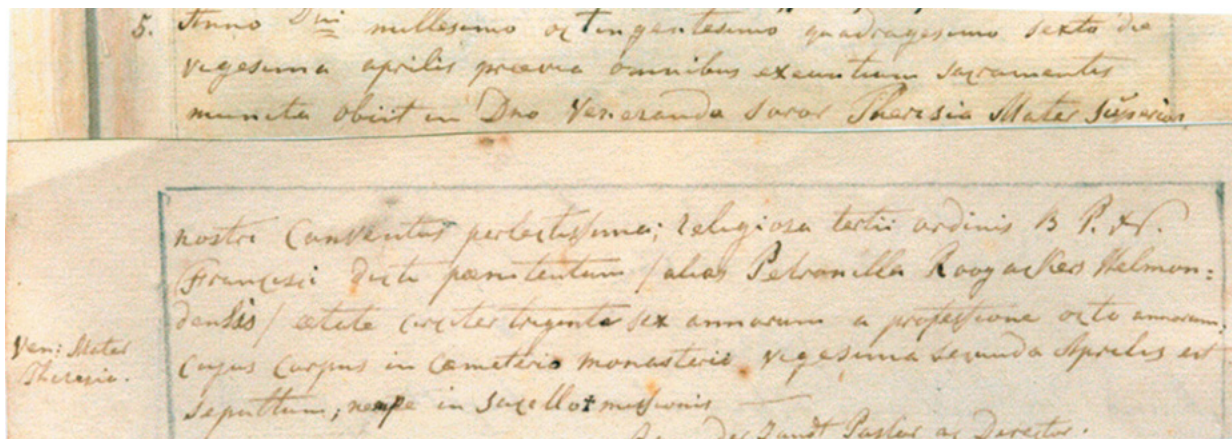 5. Anno Dni millesimo octingentesimo quadragesimo sexto die
vigesima aprilis prævia omnibus exeuntium sacramentis
munita obiit in Dno Veneranda Soror Theresia Mater Superior
nostri Conventus perlectissima; religiosa tertii ordinis B. P. N.
Francisci dicti pœnitentum / alias Petronella Roogackers Helmon=
densis / ætate circiter triginta sex annorum a professione octo annorum
Cujus Corpus in Cœmeterio monasterii vigesima secunda Aprilis est
Sepultum, nempe in Sacello
Ven: Mater
Theresia.
Pastor ac Director.